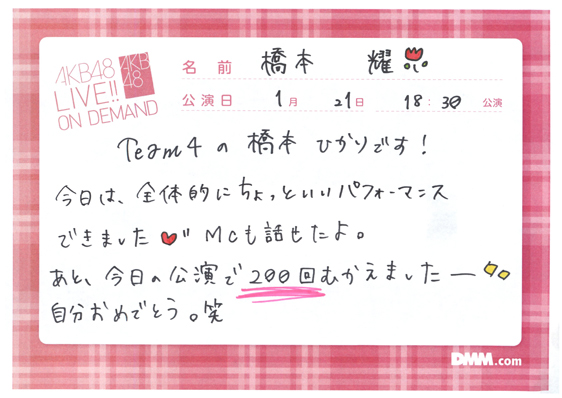 AKB48
LIVE!!
ON DEMAND
AKB
48
名前 橋本 耀
公演日 1月 21日 18:30 公演
Team4 の 橋本 ひかりです!
今日は、全体的にちょっといいパフォーマンス
できました MCも話せたよ。
あと、今日の公演で200回むかえましたー
自分おめでとう。笑
DMM.com